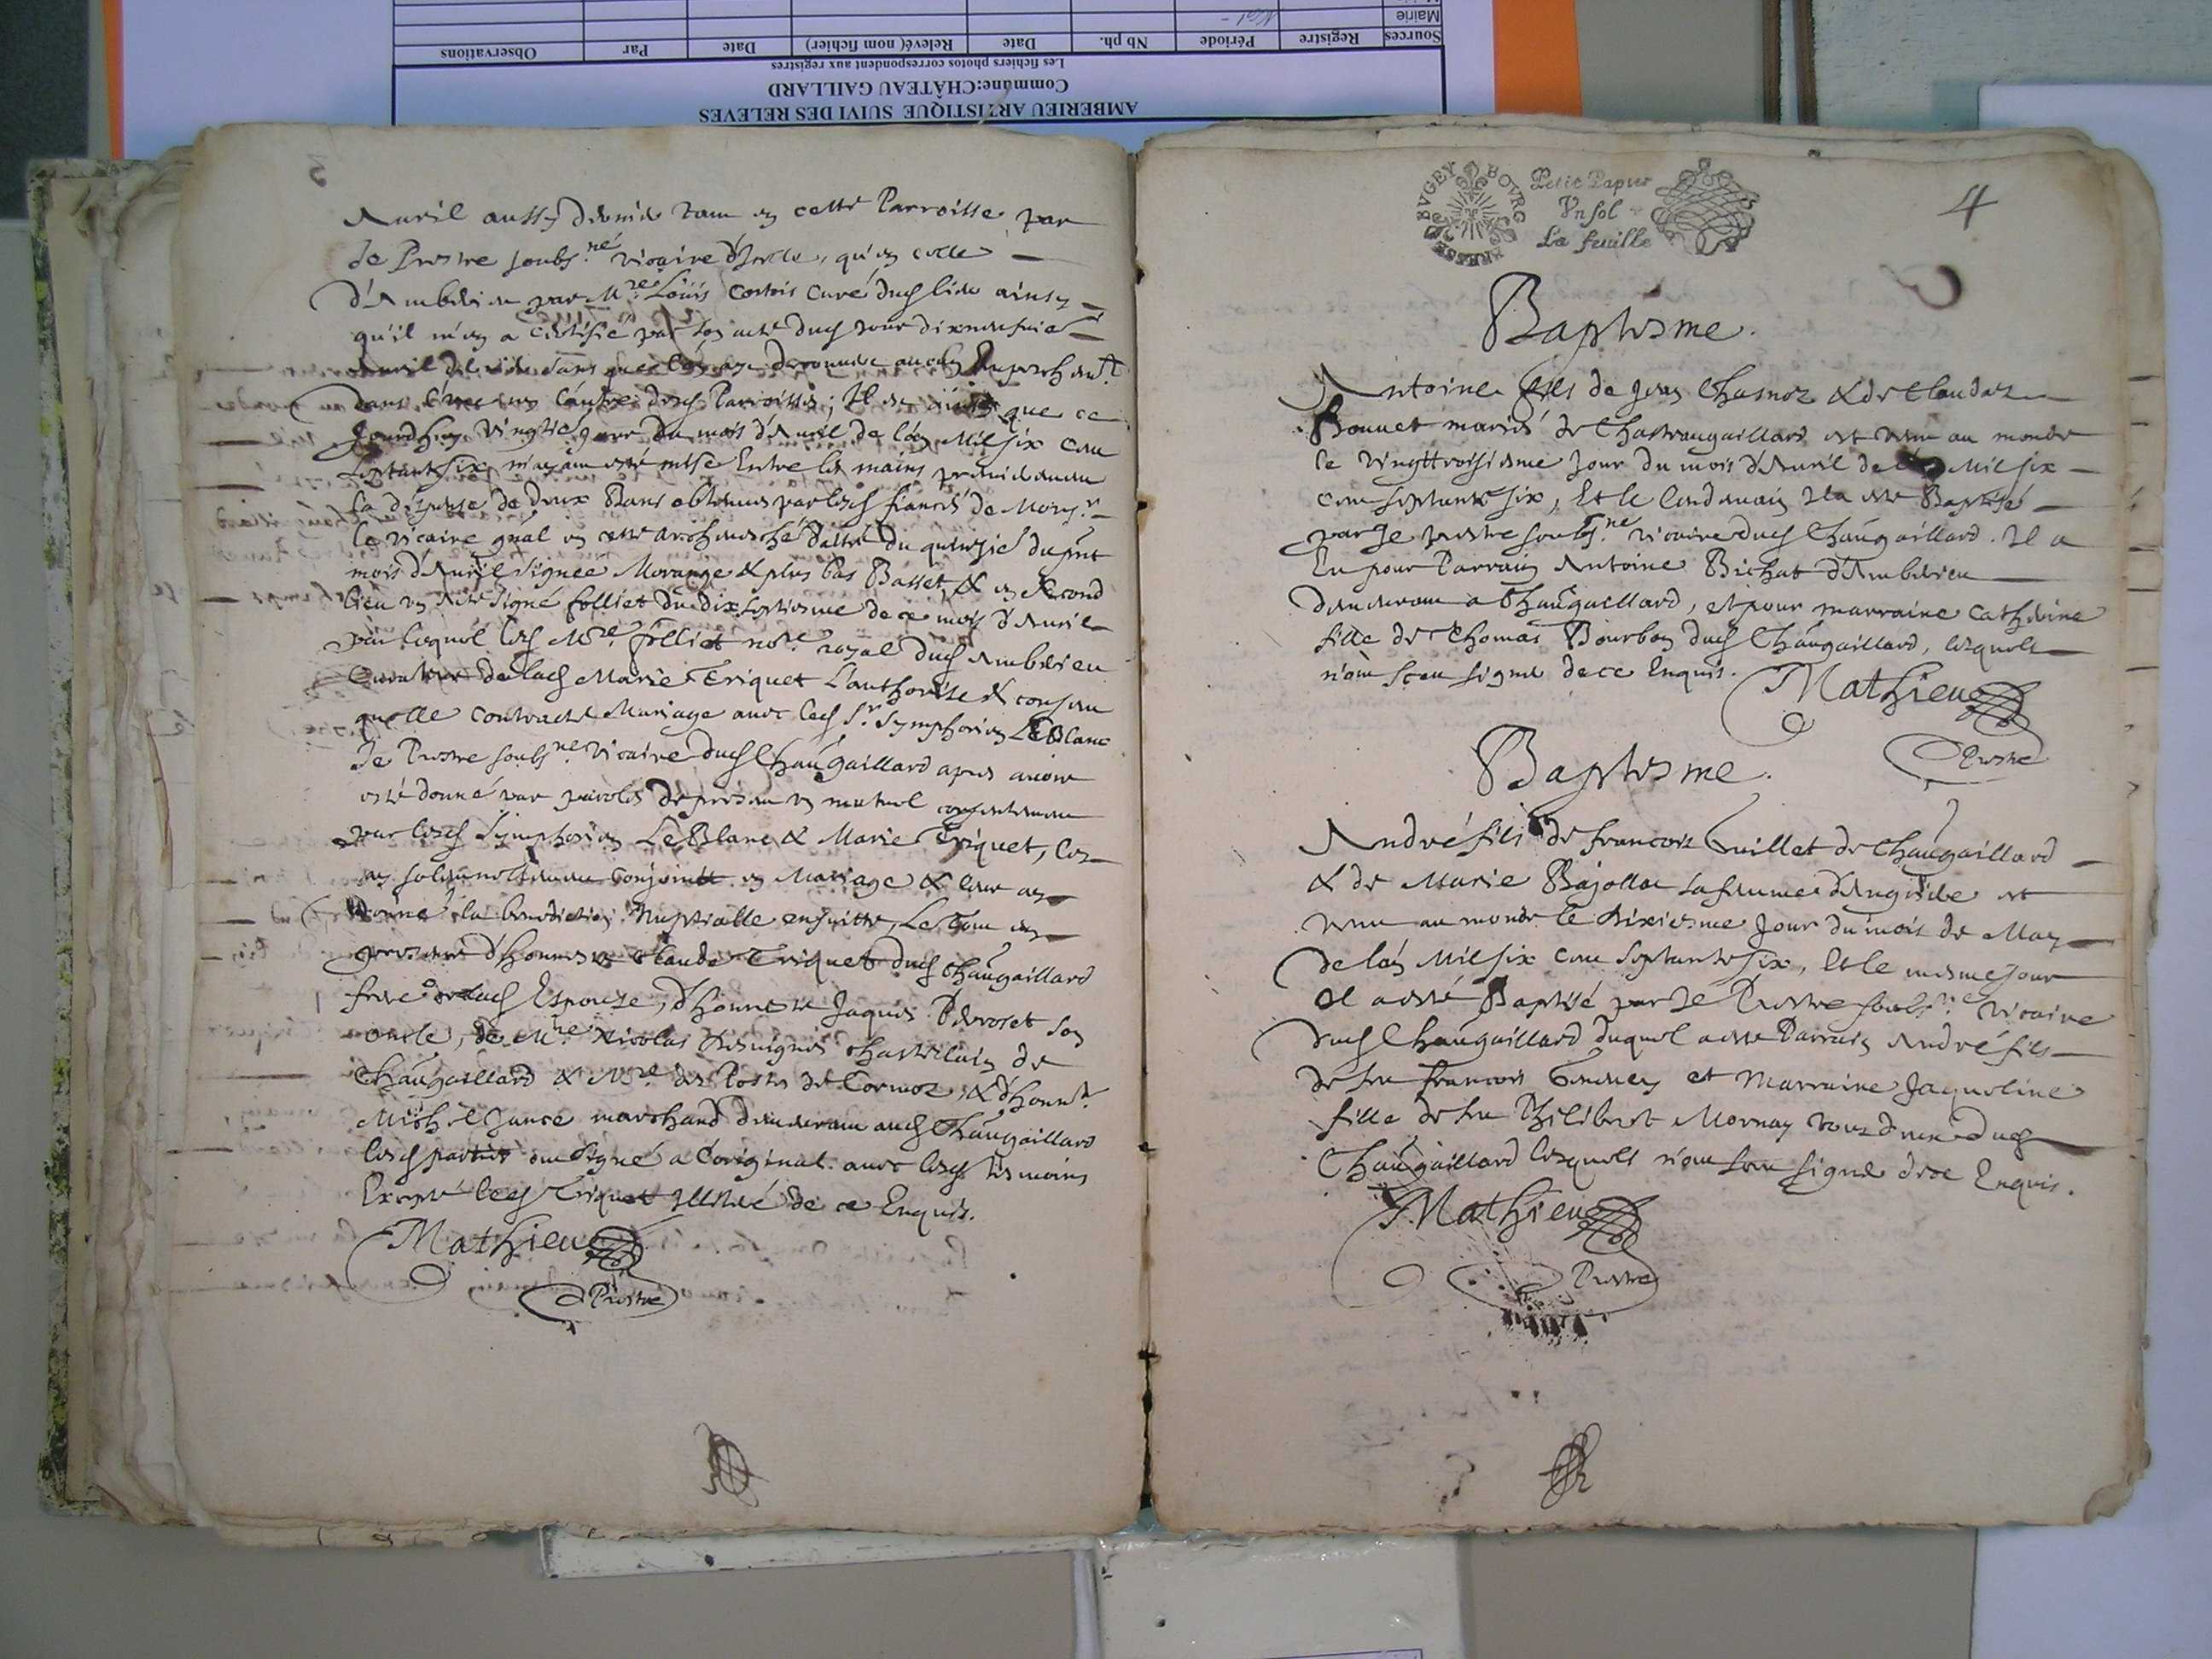 Sources Registre Période Nb ph. Date Relevé (nom fichier) Date Par Observations
Mairie
Les fichiers photos correspondent aux registres
Commune: CHÂTEAU GAILLARD
AMBERIEU ARTISTIQUE SUIVI DES RELEVES
3
Auril aussy dernier tant en cette Parroisse par
Je Prestre soubs.né vicaire d'Icelle, qu'en celle
d'Amberieu par M.re Loüis Cortois Curé dud lieu ainsy
qu'il m'en a certifié par son acte dud jour dixneufuie
dans l'vne ny l'autre desd Parroisses; Il
Jourdhuy vingtie jour du mois d'Auril de l'an Mil six cent
septante six m'ayant esté mise Entre les mains premierement
la dispense de deux Bans obtenue par lesd fiancés de Mons.r
le vicaire gnal en cette archeuesché dattée du quinzie du pnt
mois d'Auril signée Morange & plus bas Basset, & en second
lieu vn Acte signé folliet du dix septiesme de ce mois d'Auril
par lequel led M.re folliet no.re royal dud Amberieu
Curateur de lad Marie Triquet L'authorise & consent
quelle contracte Mariage auec led S.r Symphorien LeBlanc
Je Prestre soubs.né vicaire dud Chaũgaillard apres auoir
esté donné par paroles de present vn mutuel consentement
par lesd Symphorien LeBlanc & Marie Triquet, les
ay solemnellement Conjoints en Mariage & leur ay
Donné la benediction Nuptialle ensuitte, Le Tout en
presence d'Honneste Claude Triquet dud Chaũgaillard
frere de lad Espouse, d'honneste Jaques Perroset son
oncle, de M.re Nicolas Desuignes chastelain de
Chaũgaillard & M.re des Postes de Cormoz, & d'honn.te
Michel Jance marchand demeurant aud Chaũgaillard
lesd parties ont signé a l'original auec lesd tesmoins
Excepté led Triquet Illitré de ce Enquis.
Mathieu
Prestre
BVGEY BOVRG BRESSE
Petit Papier
Vn sol
La feuille
4
Baptesme.
Antoine fils de Jean Chasnoz & de Claudaz
Bonnet mariés de Chasteaugaillard est venu au monde
le vingttroisiesme Jour du mois d'Auril de l'an Mil six
cent septante six, Et le lendemain Il a esté Baptisé
par Je prestre soubs.né vicaire dud Chaũgaillard. Il a
Eu pour Parrain Antoine Bichat d'Amberieu
demeurant a Chaũgaillard, et pour marraine Catherine
fille de Thomas Bourbon dud Chaũgaillard, lesquels
n'ont sceu signer de ce Enquis.
Mathieu
Prestre
Baptesme.
André fils de francois Guillet de Chaũgaillard
& de Marie Bajollat sa femme est
venu au monde le dixiesme Jour du mois de May
de l'an Mil six cent septante six, Et le mesme jour
Il a esté Baptisé par Je Prestre soubs.né vicaire
dud Chaũgaillard duquel a esté Parrain André fils
de feu francois et Marraine Jaqueline
fille de feu Philibert Mornay tous deux dud
Chaũgaillard lesquels n'ont sceu signer de ce Enquis.
Mathieu
Prestre